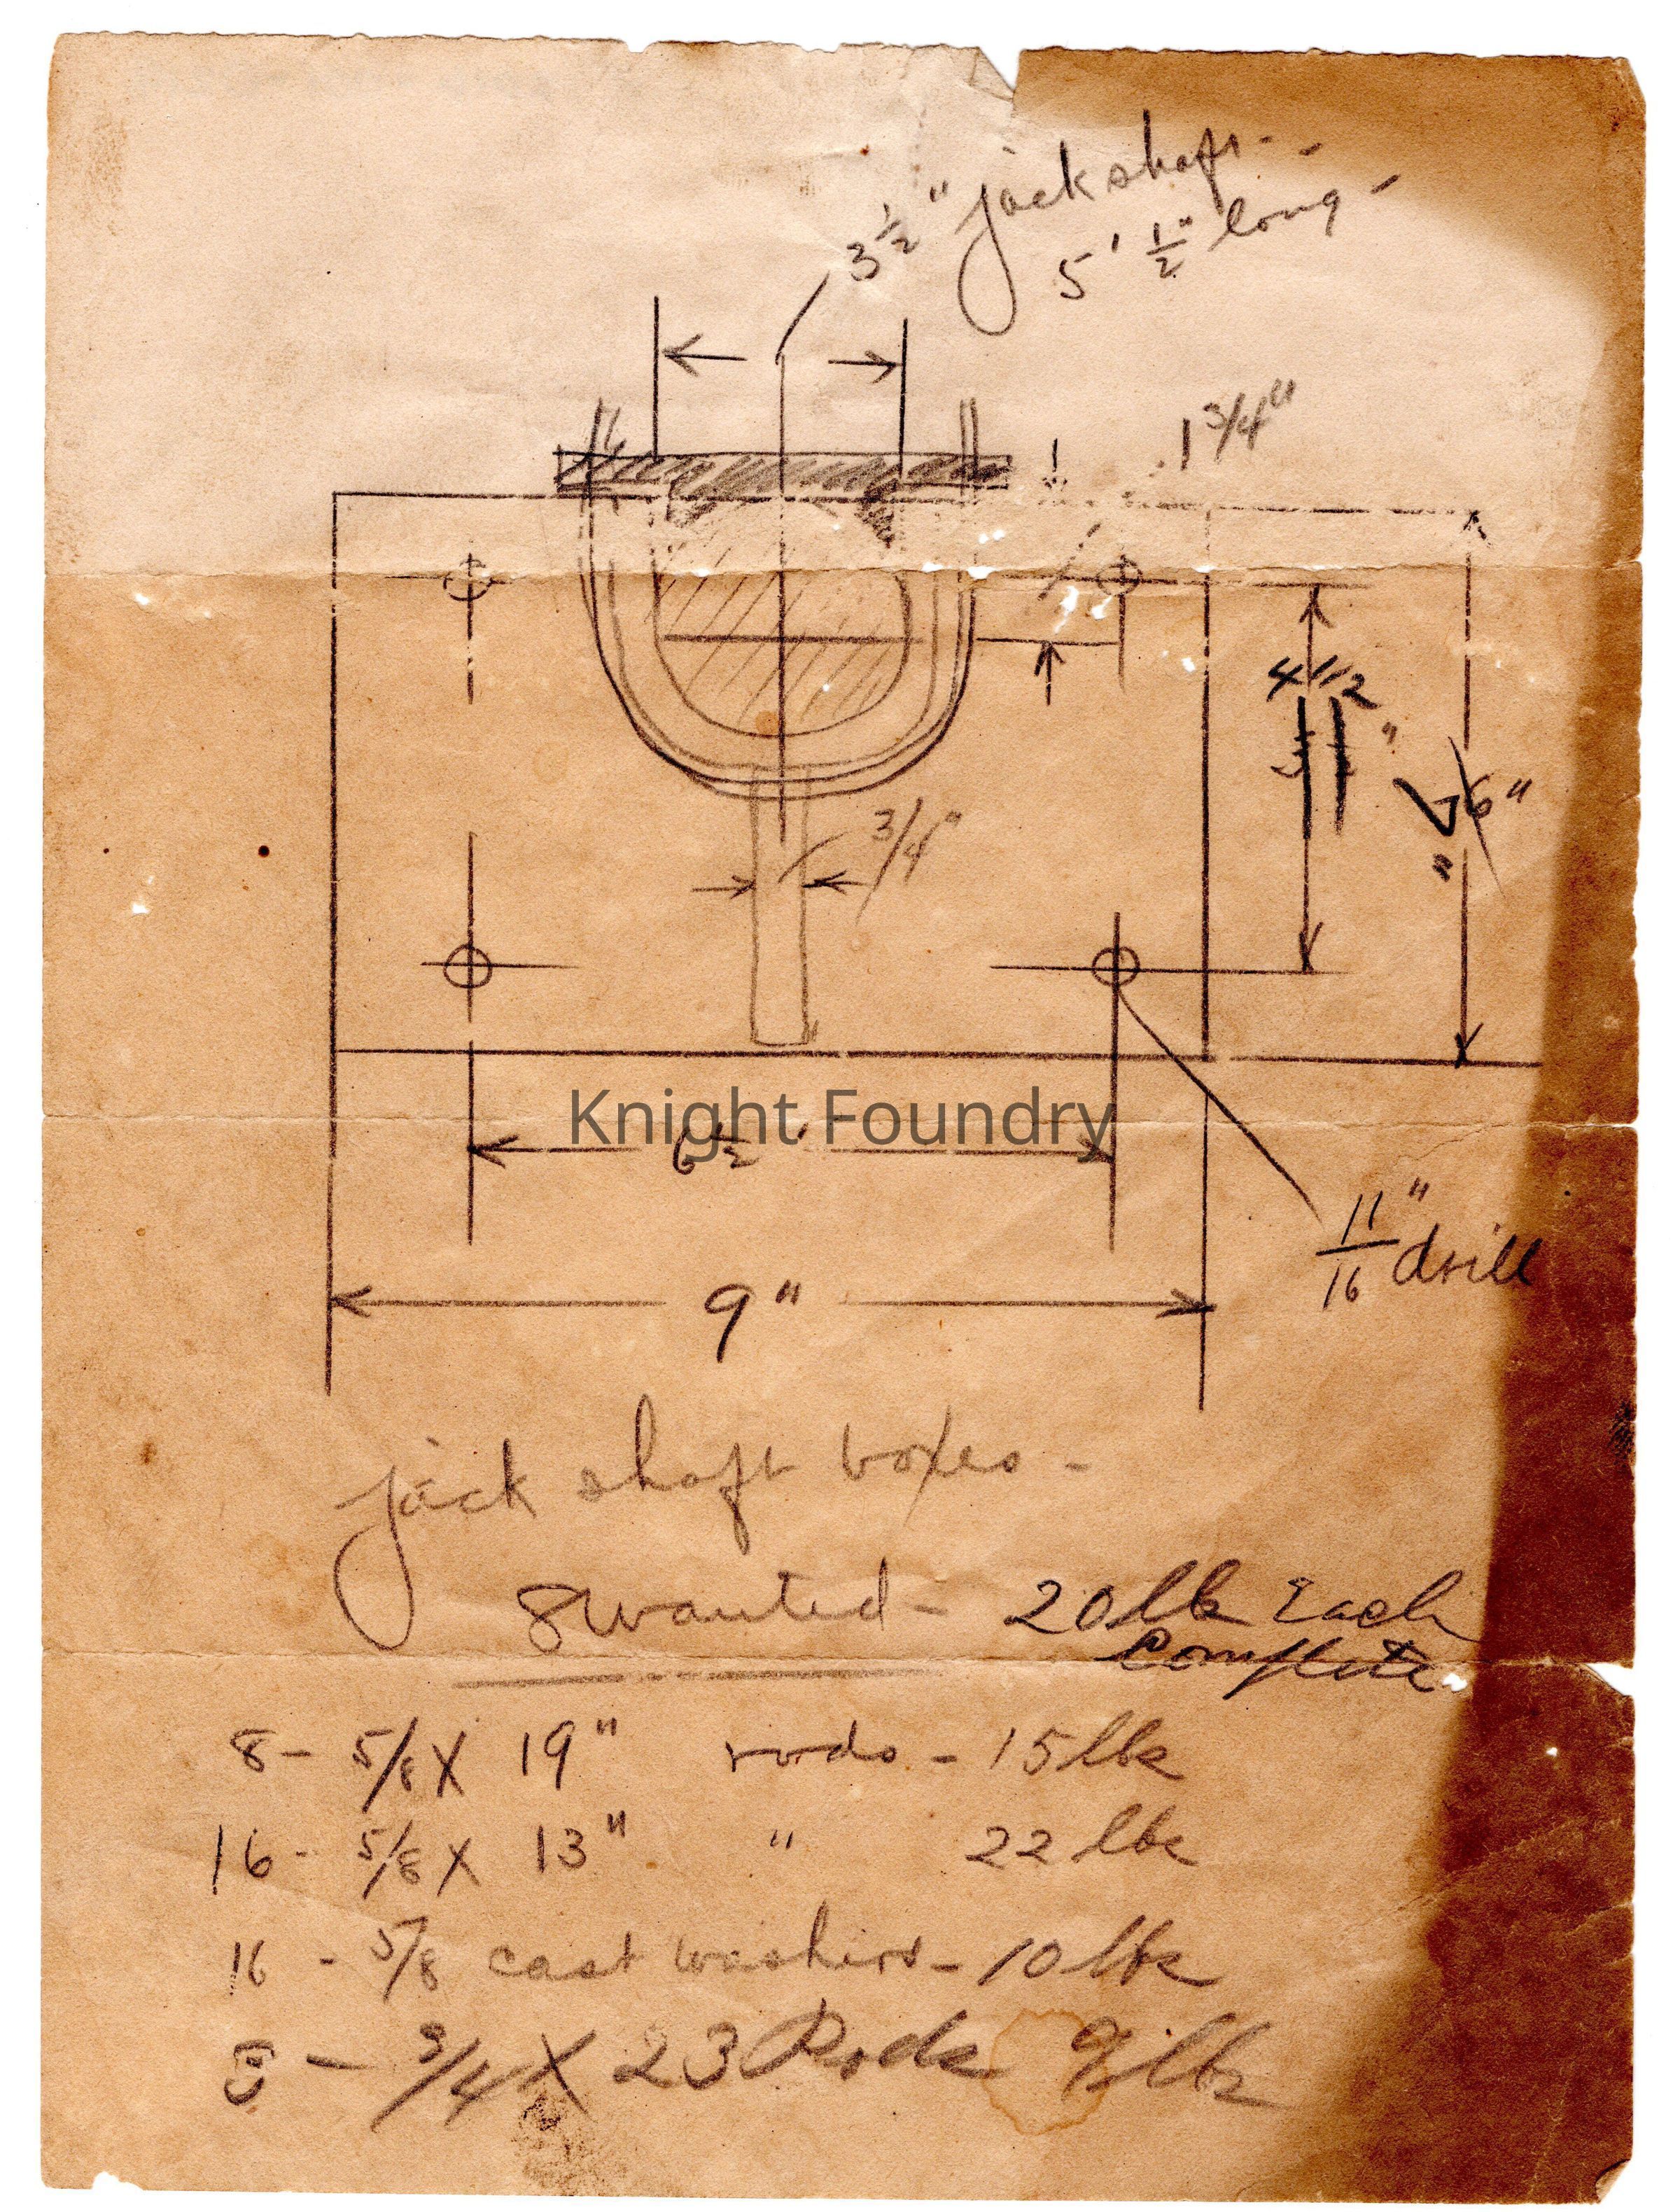 3 1/2" jack shaft - -
5' 1/2" long -
1 3/4"
4 1/2"
6"
7"
3/4"
Knight Foundry
6 1/2"
11/16" drill
9"
jack shaft boxes -
8 wanted - 20 lbs Each
Complete
8 - 5/8 X 19" rods - 15 lbs
16 - 5/8 X 13" " 22 lbs
16 - 5/8 cast washers - 10 lbs
3/4 X 23 Rods lbs